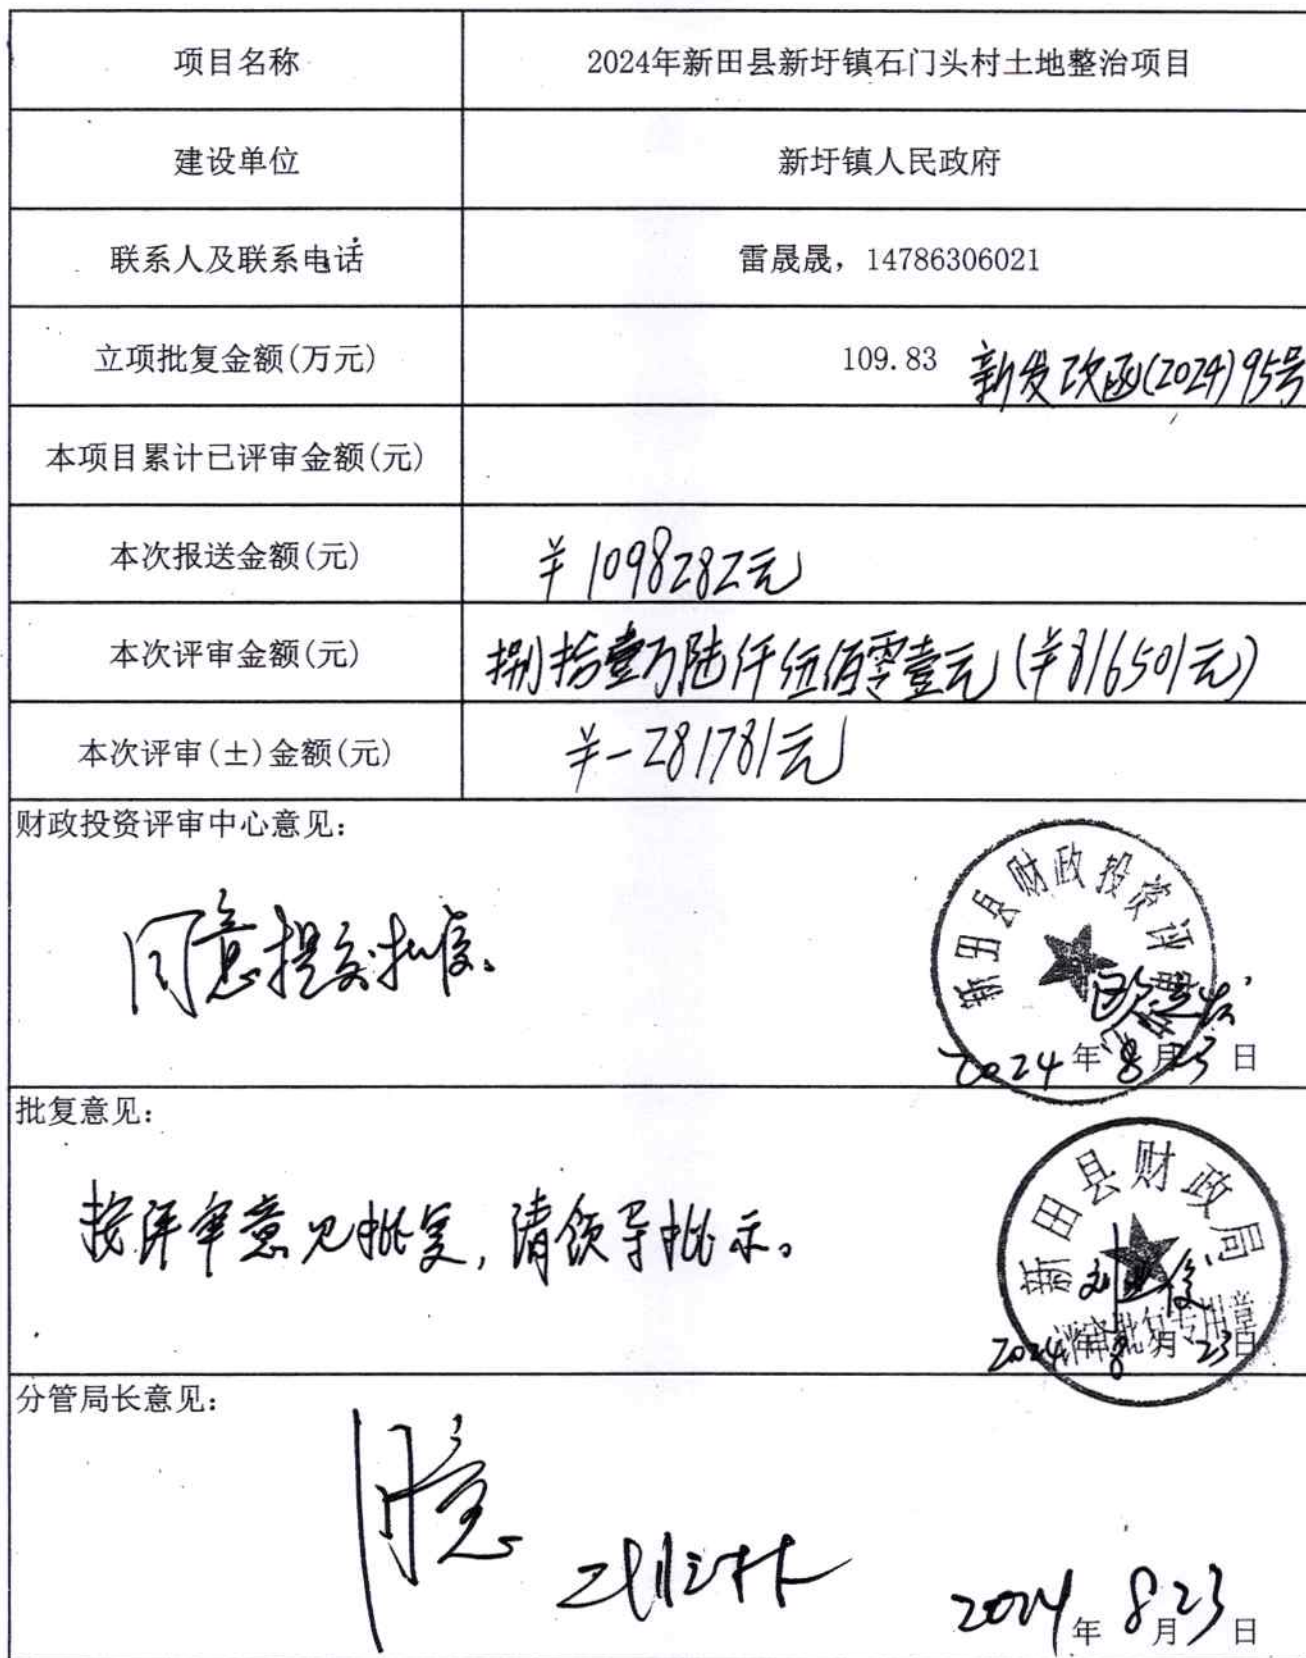 项目名称 2024年新田县新圩镇石门头村土地整治项目
建设单位 新圩镇人民政府
联系人及联系电话 雷晟晟，14786306021
立项批复金额(万元) 109.83 新发改函(2024)95号
本项目累计已评审金额(元)
本次报送金额(元) ¥1098282元
本次评审金额(元) 捌拾壹万陆仟伍佰零壹元(¥816501元)
本次评审(±)金额(元) ¥-281781元
财政投资评审中心意见：
同意提交批复。
新田县财政投资评审中心
2024年8月23日
批复意见：
按评审意见批复，请领导批示。
新田县财政局
评审批复专用章
2024年8月23日
分管局长意见：
同意
2024年8月23日